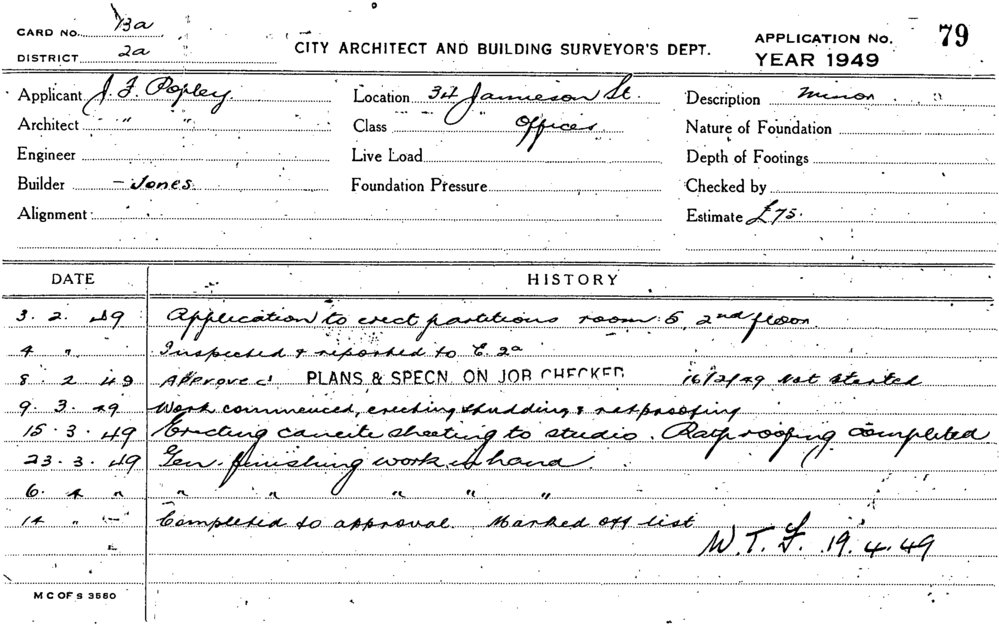 CARD No. 13a
DISTRICT 2a
CITY ARCHITECT AND BUILDING SURVEYOR'S DEPT.
APPLICATION No. 79
YEAR 1949
Applicant J. F. Popley Location 34 Jamieson St. Description Minor
Architect " " Class Offices Nature of Foundation
Engineer Live Load Depth of Footings
Builder - Jones. Foundation Pressure Checked by
Alignment Estimate £75.
DATE HISTORY
3. 2. 49 Application to erect partitions room 5, 2nd floor
4 " Inspected & reported to E. 2a
8. 2 49 Approved PLANS & SPECN. ON JOB CHECKED 16/2/49 Not started
9. 3. 49 Work commenced, erecting studding & ratproofing
15. 3. 49 Erecting caneite sheeting to studio. Ratproofing completed
23. 3. 49 Gen. finishing work in hand.
6. 4 " " " " " "
14 " Completed to approval. Marked off list
W. T. F. 19. 4. 49
M C OF S 3560